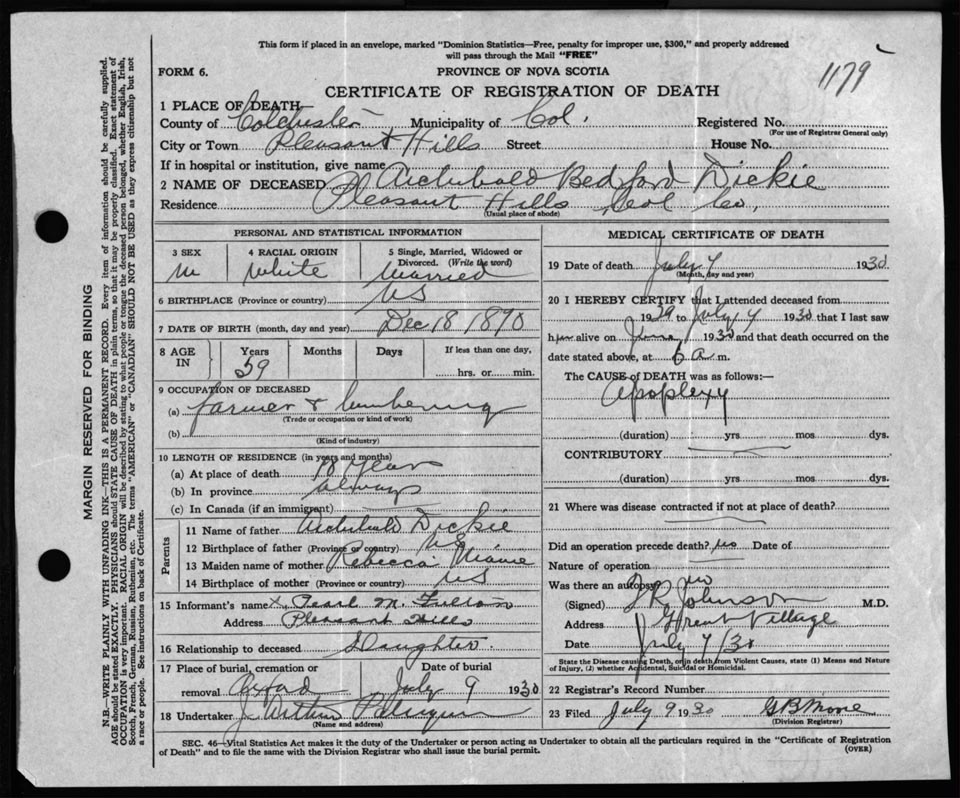 This form if placed in an envelope, marked "Dominion Statistics—Free, penalty for improper use, $300," and properly addressed
will pass through the Mail "FREE"
1179
FORM 6.
PROVINCE OF NOVA SCOTIA
CERTIFICATE OF REGISTRATION OF DEATH
1 PLACE OF DEATH
County of Colchester Municipality of Col. Registered No.
(For use of Registrar General only)
City or Town Pleasant Hills Street House No.
If in hospital or institution, give name
2 NAME OF DECEASED Archibald Bedford Dickie
Residence Pleasant Hills Col Co.
(Usual place of abode)
PERSONAL AND STATISTICAL INFORMATION
3 SEX 4 RACIAL ORIGIN 5 Single, Married, Widowed or
Divorced. (Write the word)
m white Married
6 BIRTHPLACE (Province or country) NS
7 DATE OF BIRTH (month, day and year) Dec 18 1870
8 AGE IN Years Months Days If less than one day,
59 hrs. or min.
9 OCCUPATION OF DECEASED
(a) farmer & lumbering
(Trade or occupation or kind of work)
(b)
(Kind of industry)
10 LENGTH OF RESIDENCE (in years and months)
(a) At place of death 18 years
(b) In province always
(c) In Canada (if an immigrant)
Parents
11 Name of father Archibald Dickie
12 Birthplace of father (Province or country) NS
13 Maiden name of mother Rebecca
14 Birthplace of mother (Province or country) NS
15 Informant's name x Pearl M. Fulton
Address Pleasant Hills
16 Relationship to deceased Daughter
17 Place of burial, cremation or Date of burial
removal Oxford July 9 1930
18 Undertaker J. Arthur
(Name and address)
MEDICAL CERTIFICATE OF DEATH
19 Date of death July 7 1930
(Month, day and year)
20 I HEREBY CERTIFY that I attended deceased from
1929 to July 7 1930 that I last saw
him alive on 1930 and that death occurred on the
date stated above, at 6 a m.
The CAUSE of DEATH was as follows:—
Apoplexy
(duration) yrs mos dys.
CONTRIBUTORY
(duration) yrs. mos dys.
21 Where was disease contracted if not at place of death?
Did an operation precede death? no Date of
Nature of operation
Was there an autopsy? no
(Signed) Johnson M.D.
Address Great Village
Date July 7/30
State the Disease causing Death, or in death from Violent Causes, state (1) Means and Nature
of Injury, (2) whether Accidental, Suicidal or Homicidal.
22 Registrar's Record Number
23 Filed July 9 1930 G B Moore
(Division Registrar)
SEC. 46—Vital Statistics Act makes it the duty of the Undertaker or person acting as Undertaker to obtain all the particulars required in the "Certificate of Registration
of Death" and to file the same with the Division Registrar who shall issue the burial permit.
(OVER)
MARGIN RESERVED FOR BINDING
N.B.—WRITE PLAINLY WITH UNFADING INK—THIS IS A PERMANENT RECORD. Every item of information should be carefully supplied.
AGE should be stated EXACTLY. PHYSICIANS should STATE CAUSE OF DEATH in plain terms, so that it may be properly classified. Exact statement of
OCCUPATION is very important. RACIAL ORIGIN will be described by stating to what people or tongue the deceased person belonged, whether English, Irish,
Scotch, French, German, Russian, Ruthenian, etc. The terms "AMERICAN" or "CANADIAN" SHOULD NOT BE USED as they express citizenship but not
a race or people. See instructions on back of Certificate.